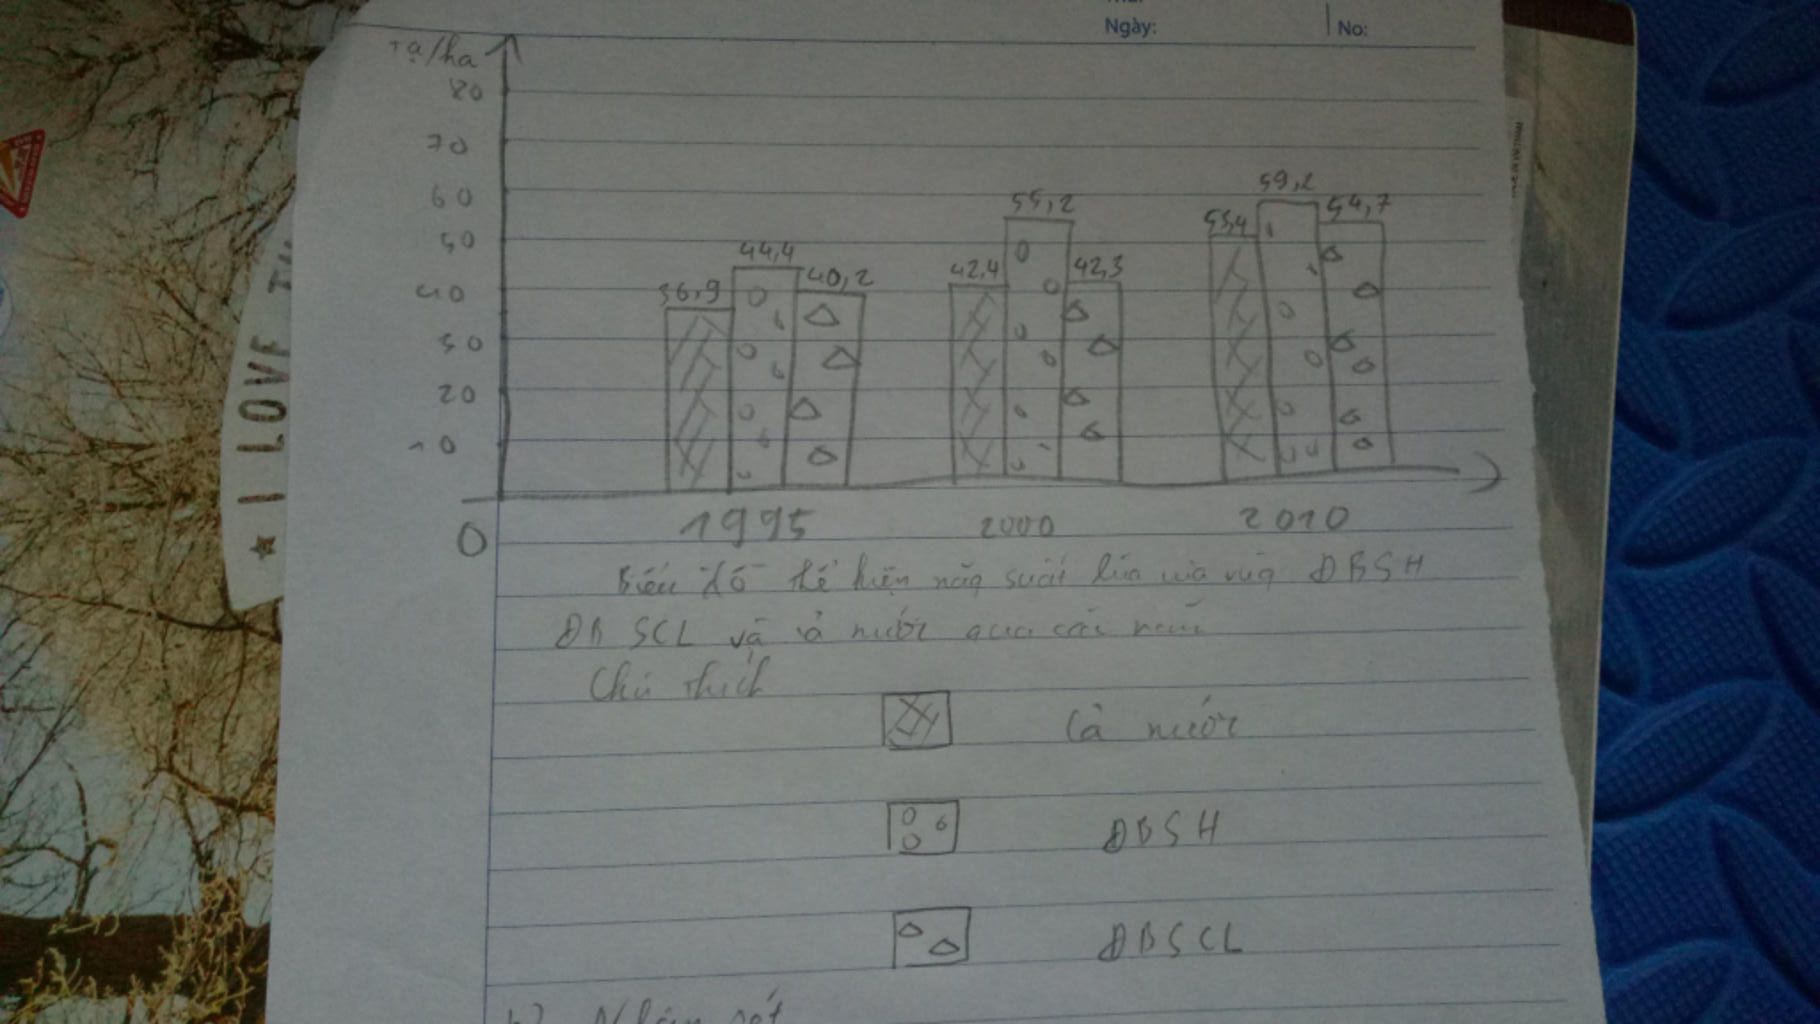 Ngày:
No:
Tạ/ha
80
70
60
50
40
30
20
10
0
36,9 44,4 40,2
42,4 55,2 42,3
53,4 59,2 54,7
1995 2000 2010
Biểu đồ thể hiện năg suất lúa của vùg ĐBSH
ĐBSCL và cả nước qua các năm
Chú thích
Cả nước
ĐBSH
ĐBSCL
b) Nhận xét
★ I LOVE